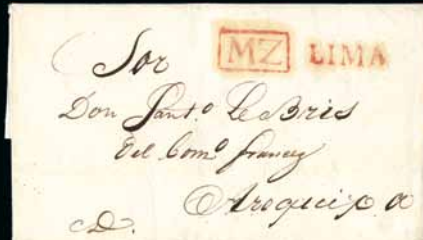 Sor MZ LIMA
Don Sant.º Le Bris
del Com.º frances
Arequipa